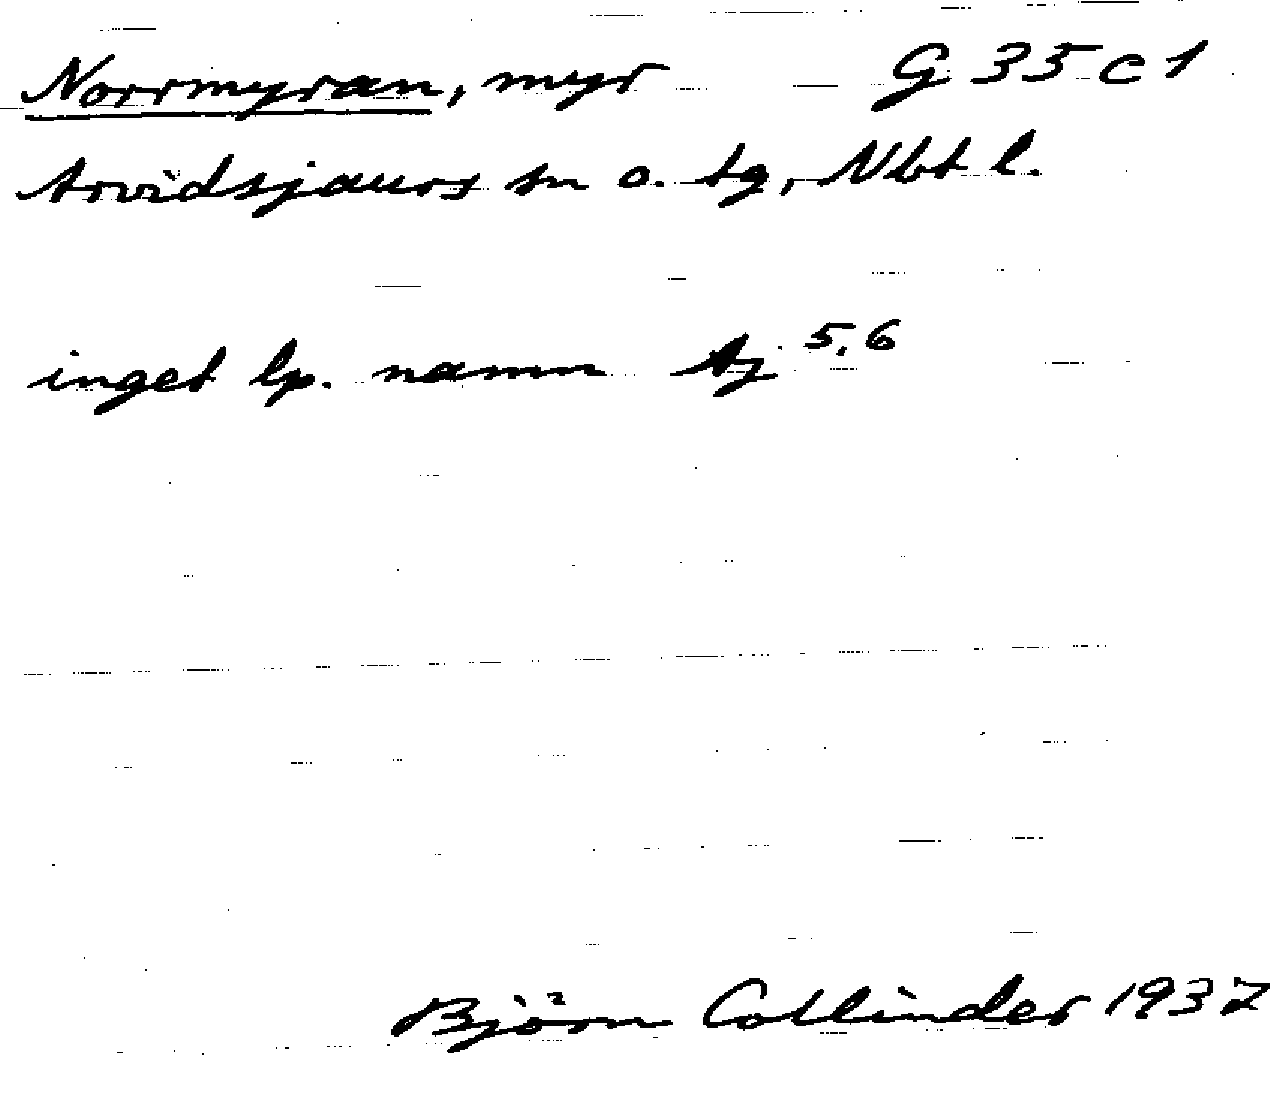 Norrmyran, myr G 35 c 1
Arvidsjaurs sn o. tg, Nbt l.
inget lp. namn Aj 5,6
Björn Collinder 1937